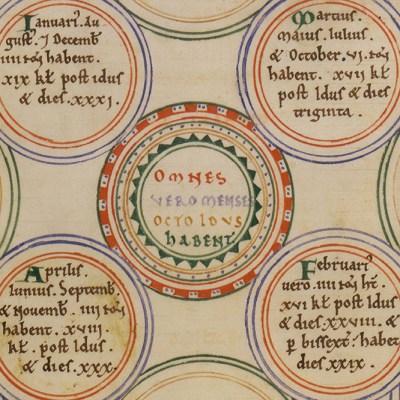 Ianuari⁹. Au
gust⁹. ⁊ Decemb̄
IIII noñ habent.
XIX kł post idus
& dies. XXXI.
Martius.
Maius. Iulius.
& October. VI. noñ
habent. XVII kł
post Idus & dies
triginta.
OMNES
VERO MENSES
OCTO IDVS
HABENT.
Aprilis.
Iunius. Septemb̄
& Novemb̄. IIII noñ
habent. XVIII.
kł. post Idus.
& dies. XXX.
Februari⁹
vero. IIII noñ ht̄.
XVI kł post Idus
& dies. XXVIII. &
p̱ bissext̄. habet
dies XXIX.